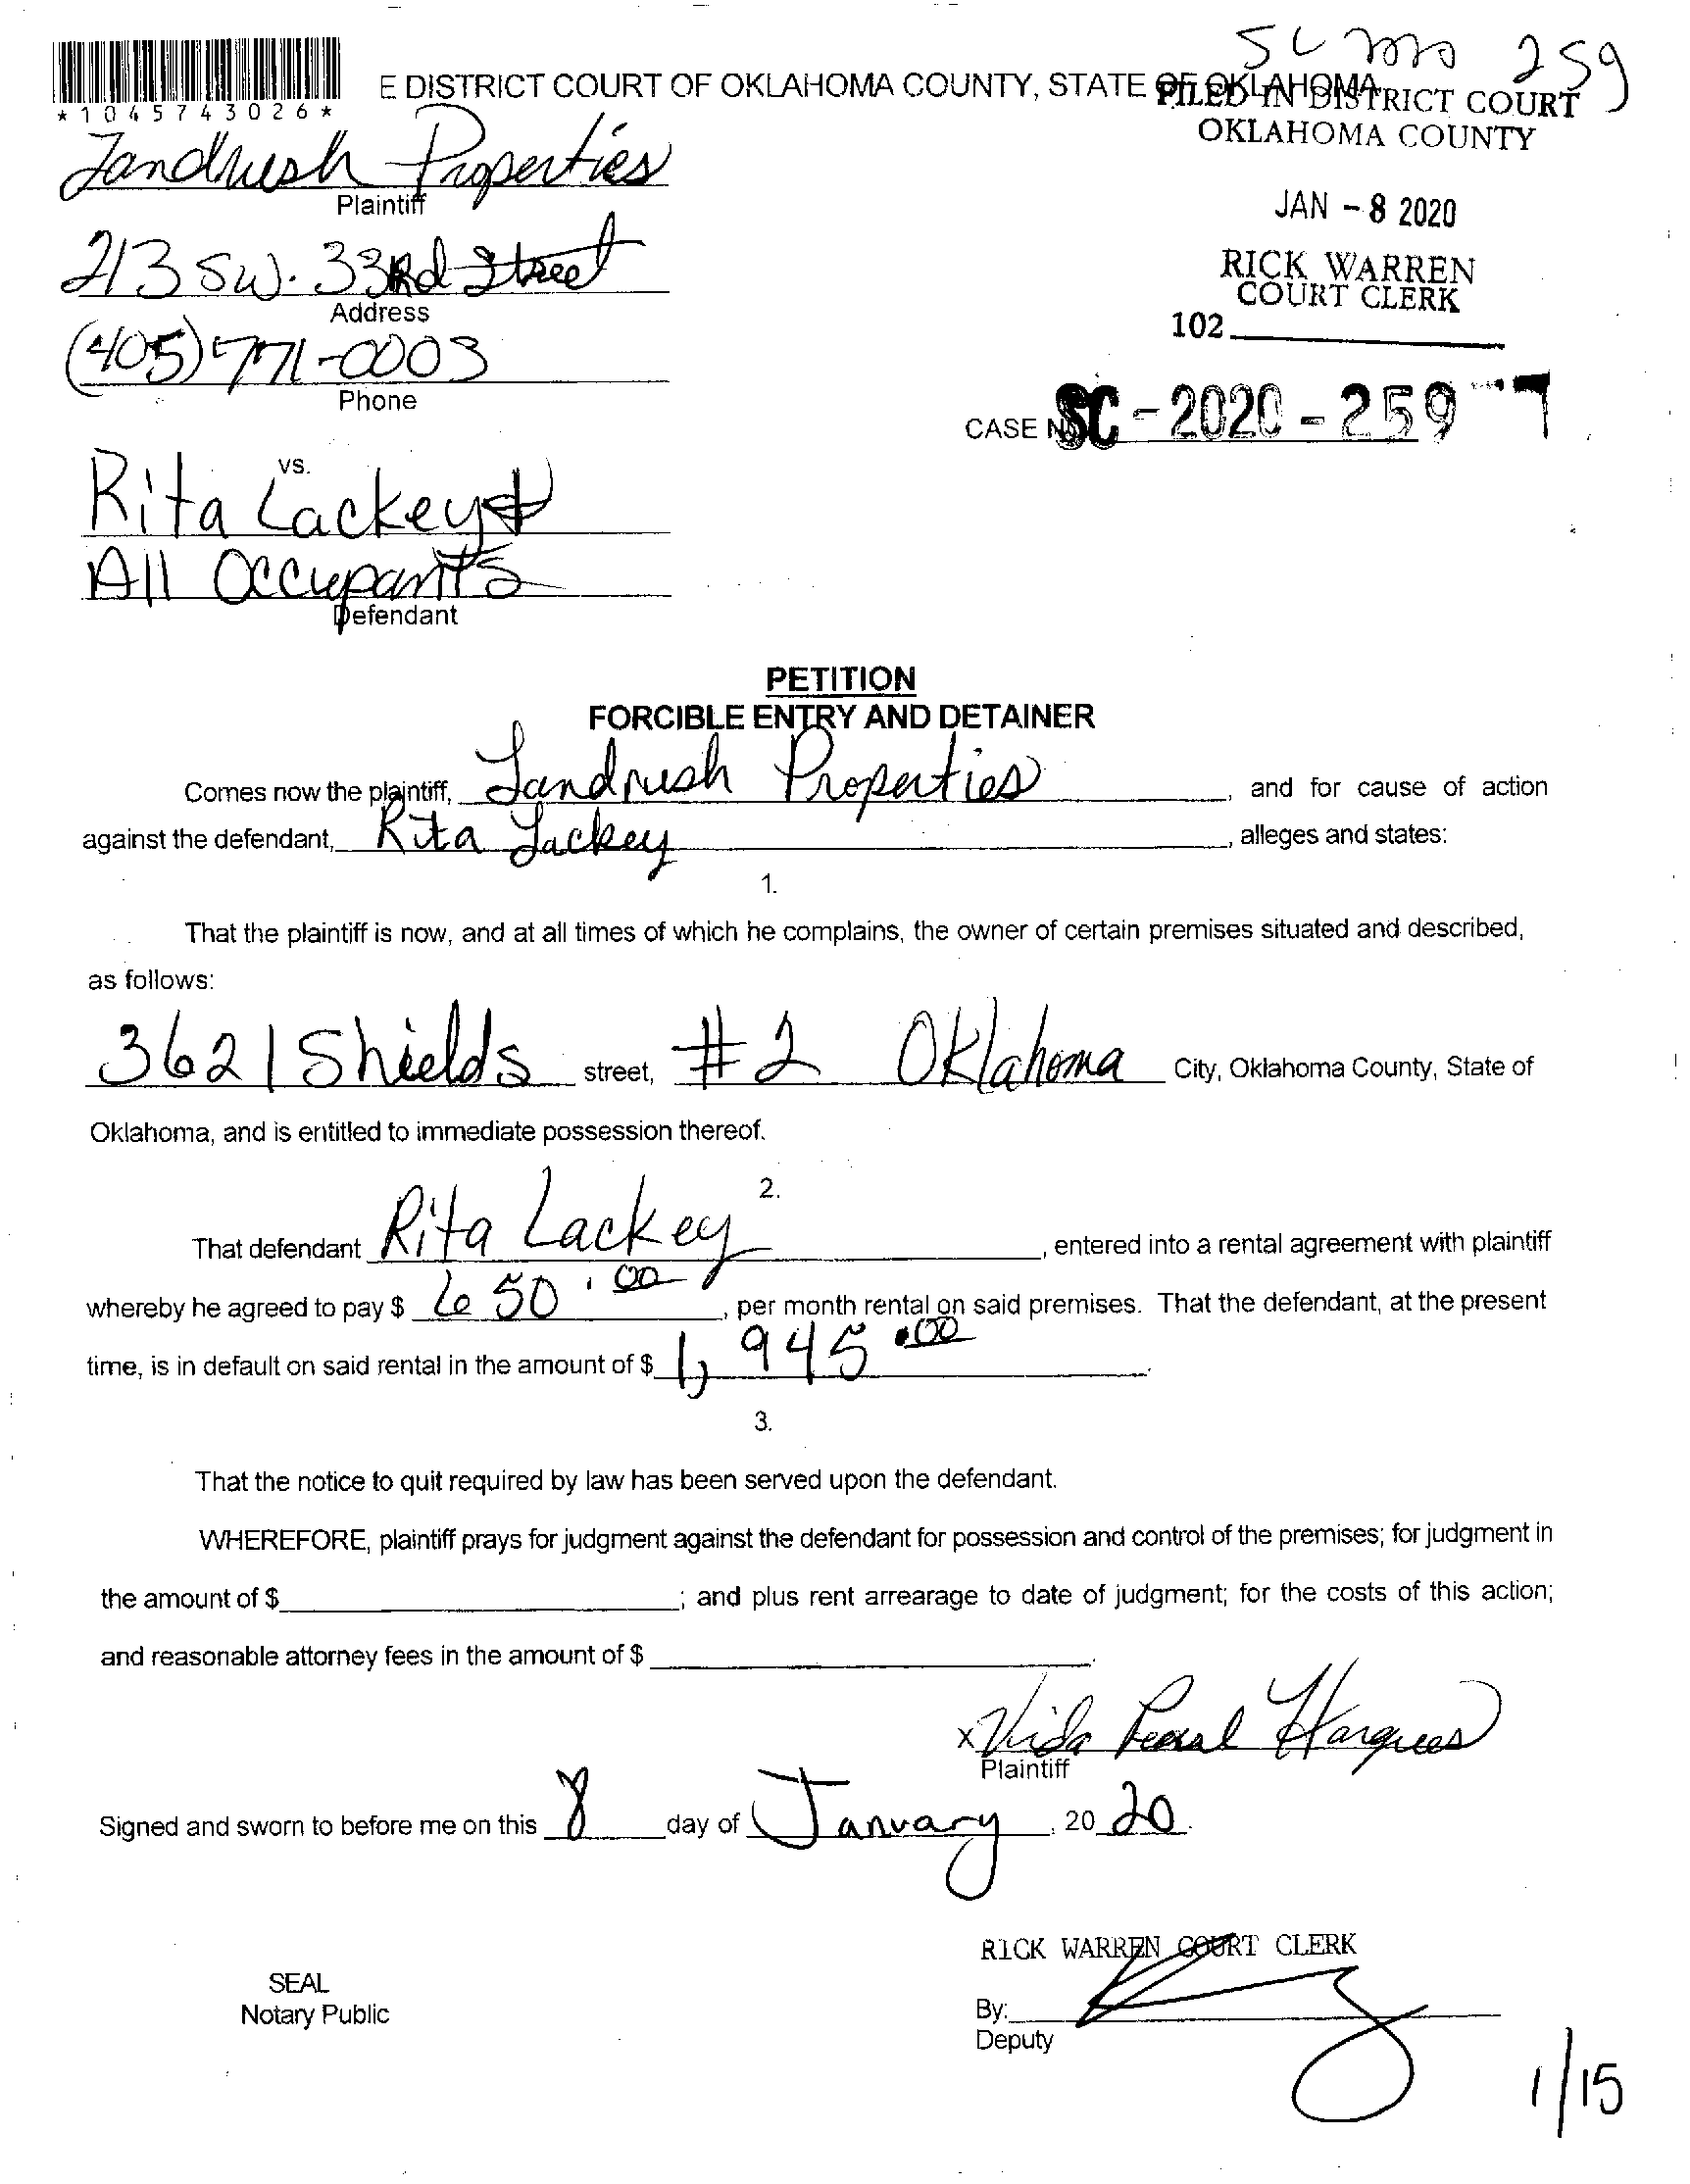 SC 2020 259
E DISTRICT COURT OF OKLAHOMA COUNTY, STATE OF OKLAHOMA
*1045743026*
FILED IN DISTRICT COURT
OKLAHOMA COUNTY
Landrush Properties
Plaintiff
JAN - 8 2020
213 SW. 33Rd Street
Address
RICK WARREN
COURT CLERK
102
(405) 771-0003
Phone
CASE NO. SC - 2020 - 259
vs.
Rita Lackey &
All Occupants
Defendant
PETITION
FORCIBLE ENTRY AND DETAINER
Comes now the plaintiff, Landrush Properties, and for cause of action
against the defendant, Rita Lackey, alleges and states:
1.
That the plaintiff is now, and at all times of which he complains, the owner of certain premises situated and described,
as follows:
3621 Shields street, #2 Oklahoma City, Oklahoma County, State of
Oklahoma, and is entitled to immediate possession thereof.
2.
That defendant Rita Lackey, entered into a rental agreement with plaintiff
whereby he agreed to pay $ 650.00, per month rental on said premises. That the defendant, at the present
time, is in default on said rental in the amount of $ 1,945.00.
3.
That the notice to quit required by law has been served upon the defendant.
WHEREFORE, plaintiff prays for judgment against the defendant for possession and control of the premises; for judgment in
the amount of $ ; and plus rent arrearage to date of judgment; for the costs of this action;
and reasonable attorney fees in the amount of $ .
x Vida Pearl
Plaintiff
Signed and sworn to before me on this 8 day of January, 20 20.
RICK WARREN COURT CLERK
SEAL
Notary Public
By:
Deputy
1/15